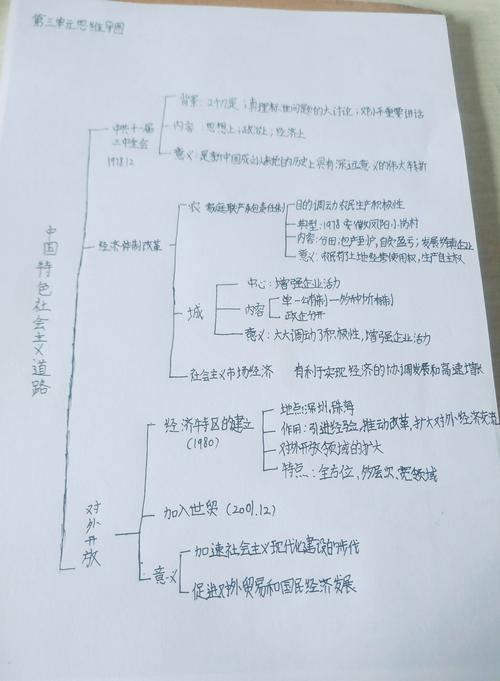 第三单元思维导图
中国特色社会主义道路
中共十一届
三中全会
1978.12
背景：2个凡是；真理标准问题的大讨论；邓小平重要讲话
内容：思想上；政治上；经济上
意义：是新中国成立以来党的历史上具有深远意义的伟大转折
经济体制改革
农 家庭联产承包责任制
目的调动农民生产积极性
典型：1978 安徽凤阳小岗村
内容：分田包产到户，自负盈亏；发展乡镇企业
意义：农民有土地经营使用权，生产自主权
城
中心：增强企业活力
内容
单一公有制—多种所有制
政企分开
意义：大大调动了积极性，增强企业活力
社会主义市场经济 有利于实现经济的协调发展和高速增长
对外开放
经济特区的建立
(1980)
地点：深圳，珠海
作用：引进经验，推动改革，扩大对外经济交流
对外开放领域的扩大
特点：全方位，多层次，宽领域
加入世贸（2001.12）
意义
加速社会主义现代化建设的步伐
促进对外贸易和国民经济发展